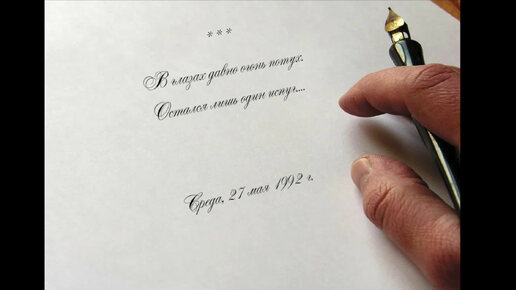 * * *
В глазах давно огонь потух.
Остался лишь один испуг....
Среда, 27 мая 1992 г.